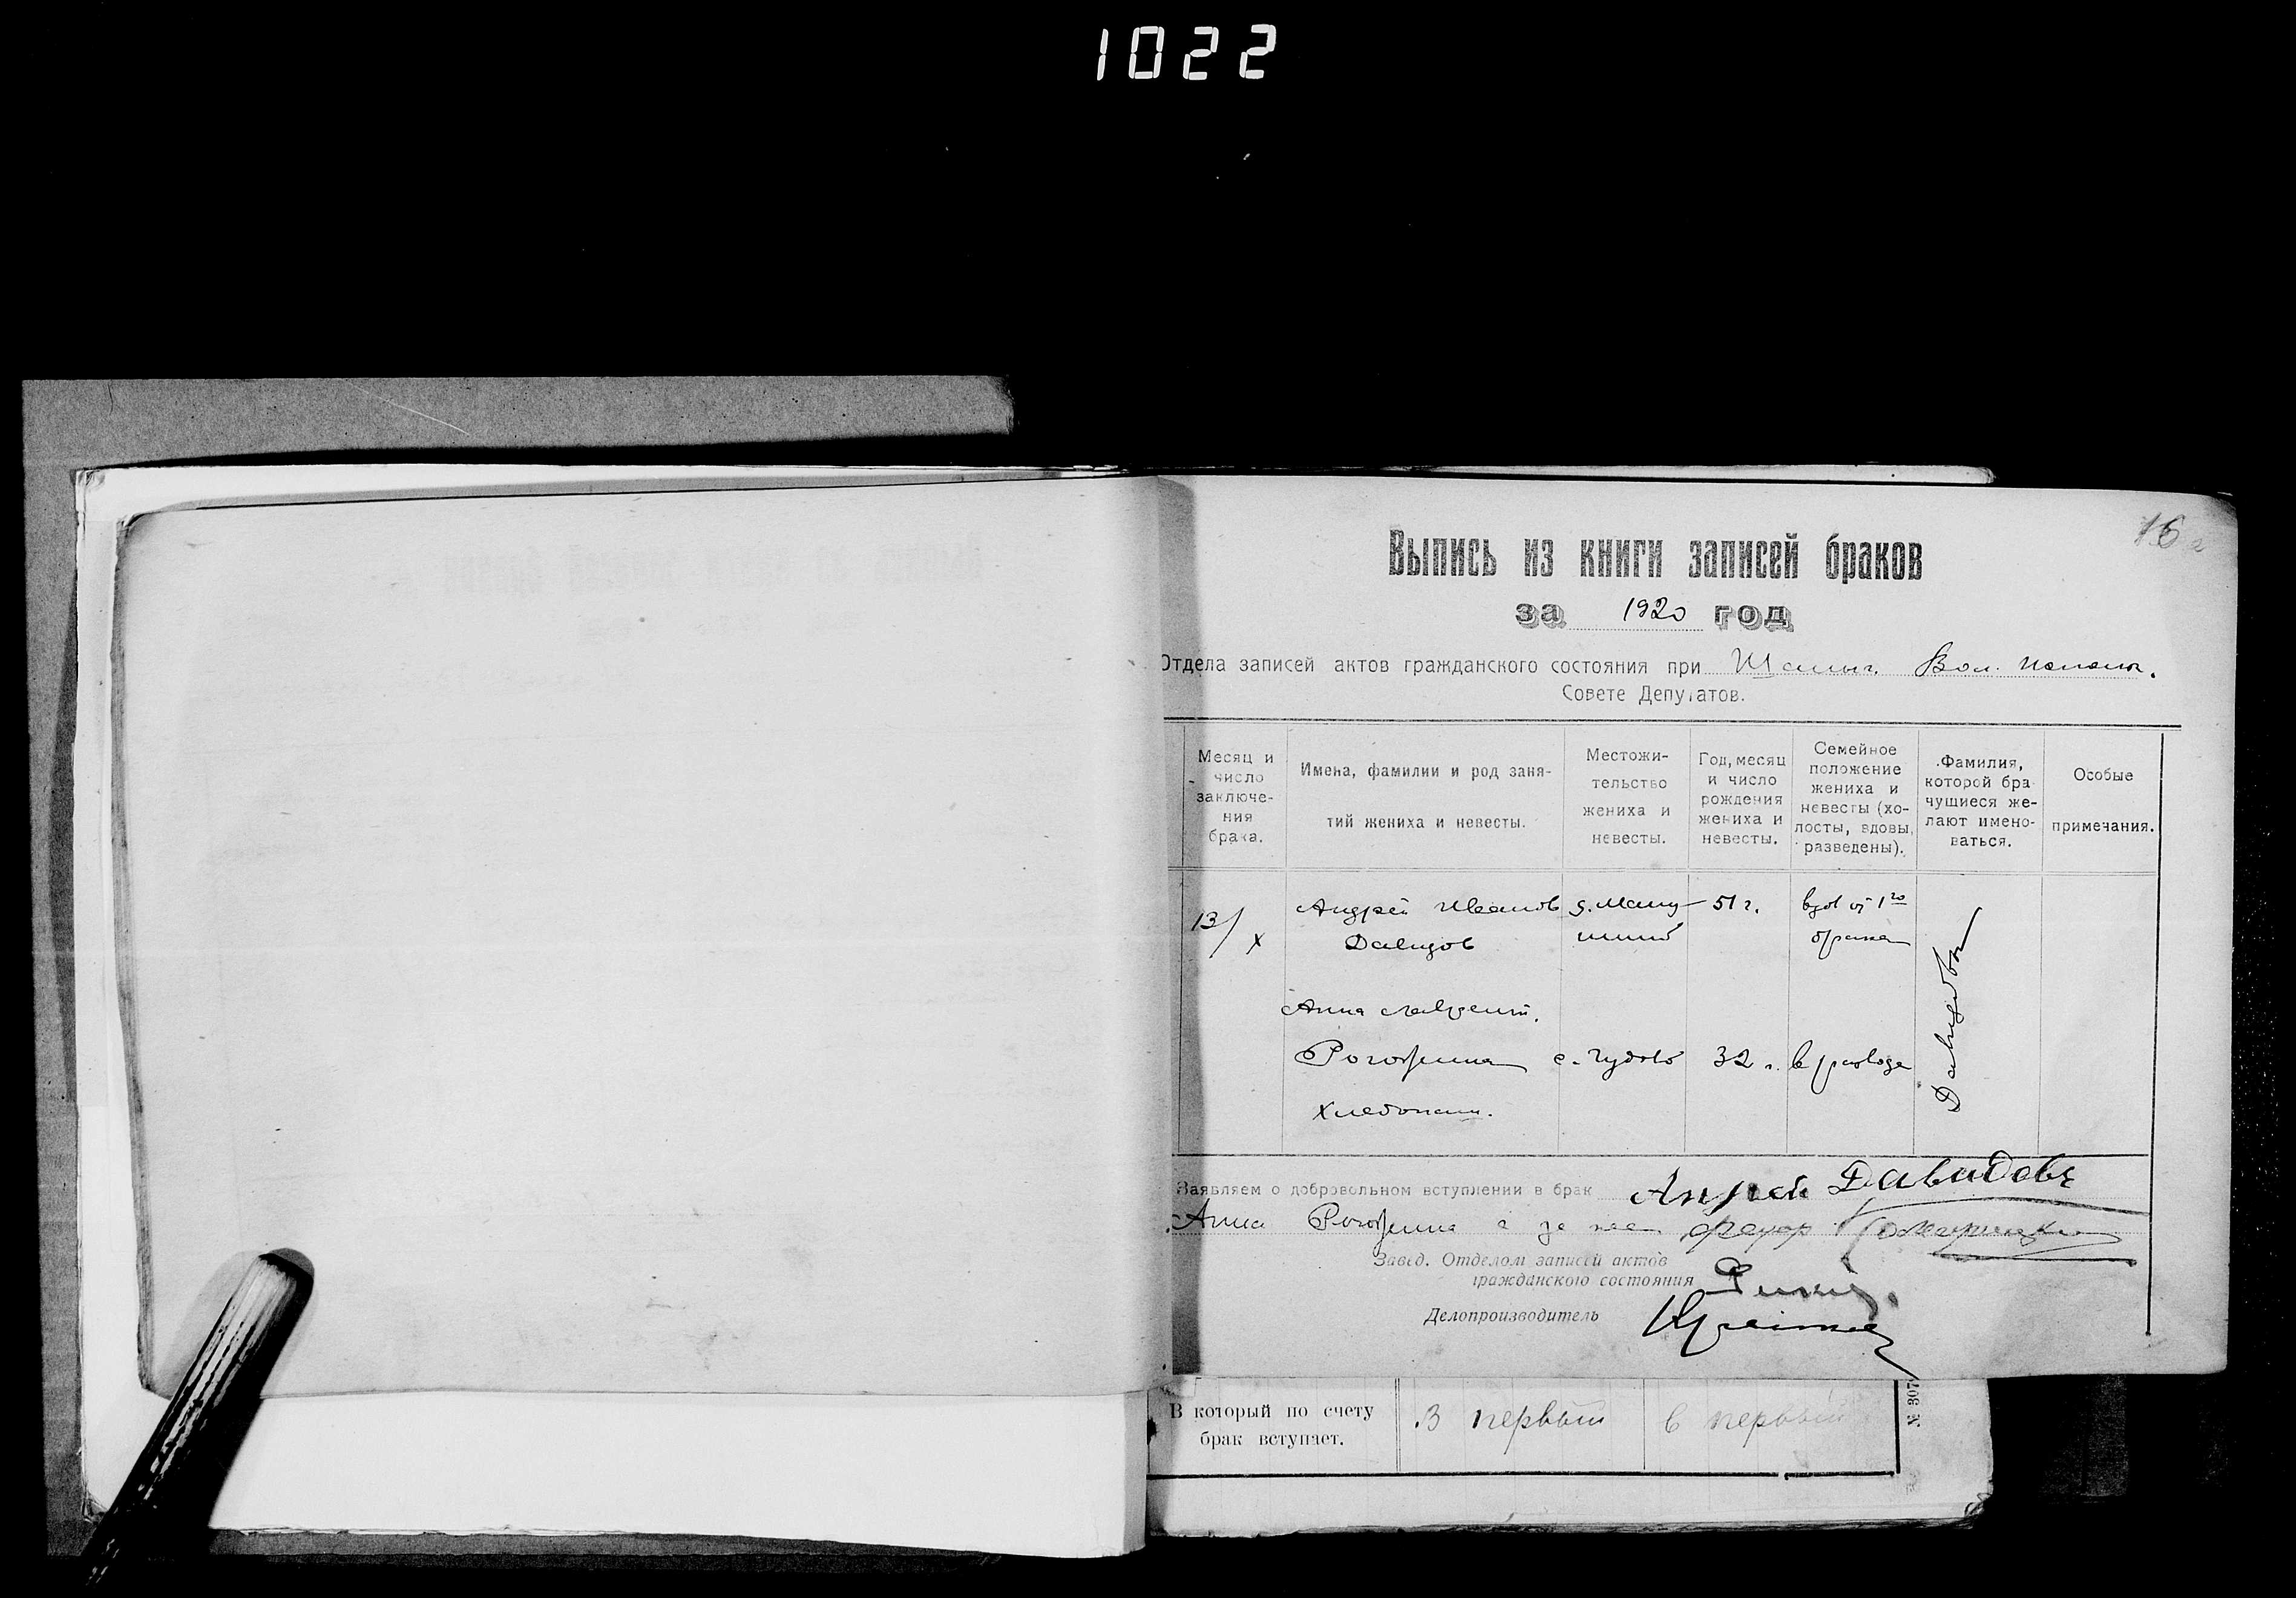 1022
16
Выпись из книги записей браков
за 1920 год
Отдела записей актов гражданского состояния при Вол.
Совете Депутатов.
Месяц и число заключения брака.
Имена, фамилии и род занятий жениха и невесты.
Местожительство жениха и невесты.
Год, месяц и число рождения жениха и невесты.
Семейное положение жениха и невесты (холосты, вдовы, разведены).
Фамилия, которой брачущиеся желают именоваться.
Особые примечания.
13/X
Андрей Иванов
Давидов
51 г.
вдов 1го
брака
Анна
Рогожина с. Чудово 32 г. в разводе
Хлебопаш.
Давидовы
Заявляем о добровольном вступлении в брак Андрей Давидовъ
Анна Рогожина а за нее
Завед. Отделом записей актов
гражданского состояния
Делопроизводитель
В который по счету
брак вступает.
В первый
в первый
№ 307